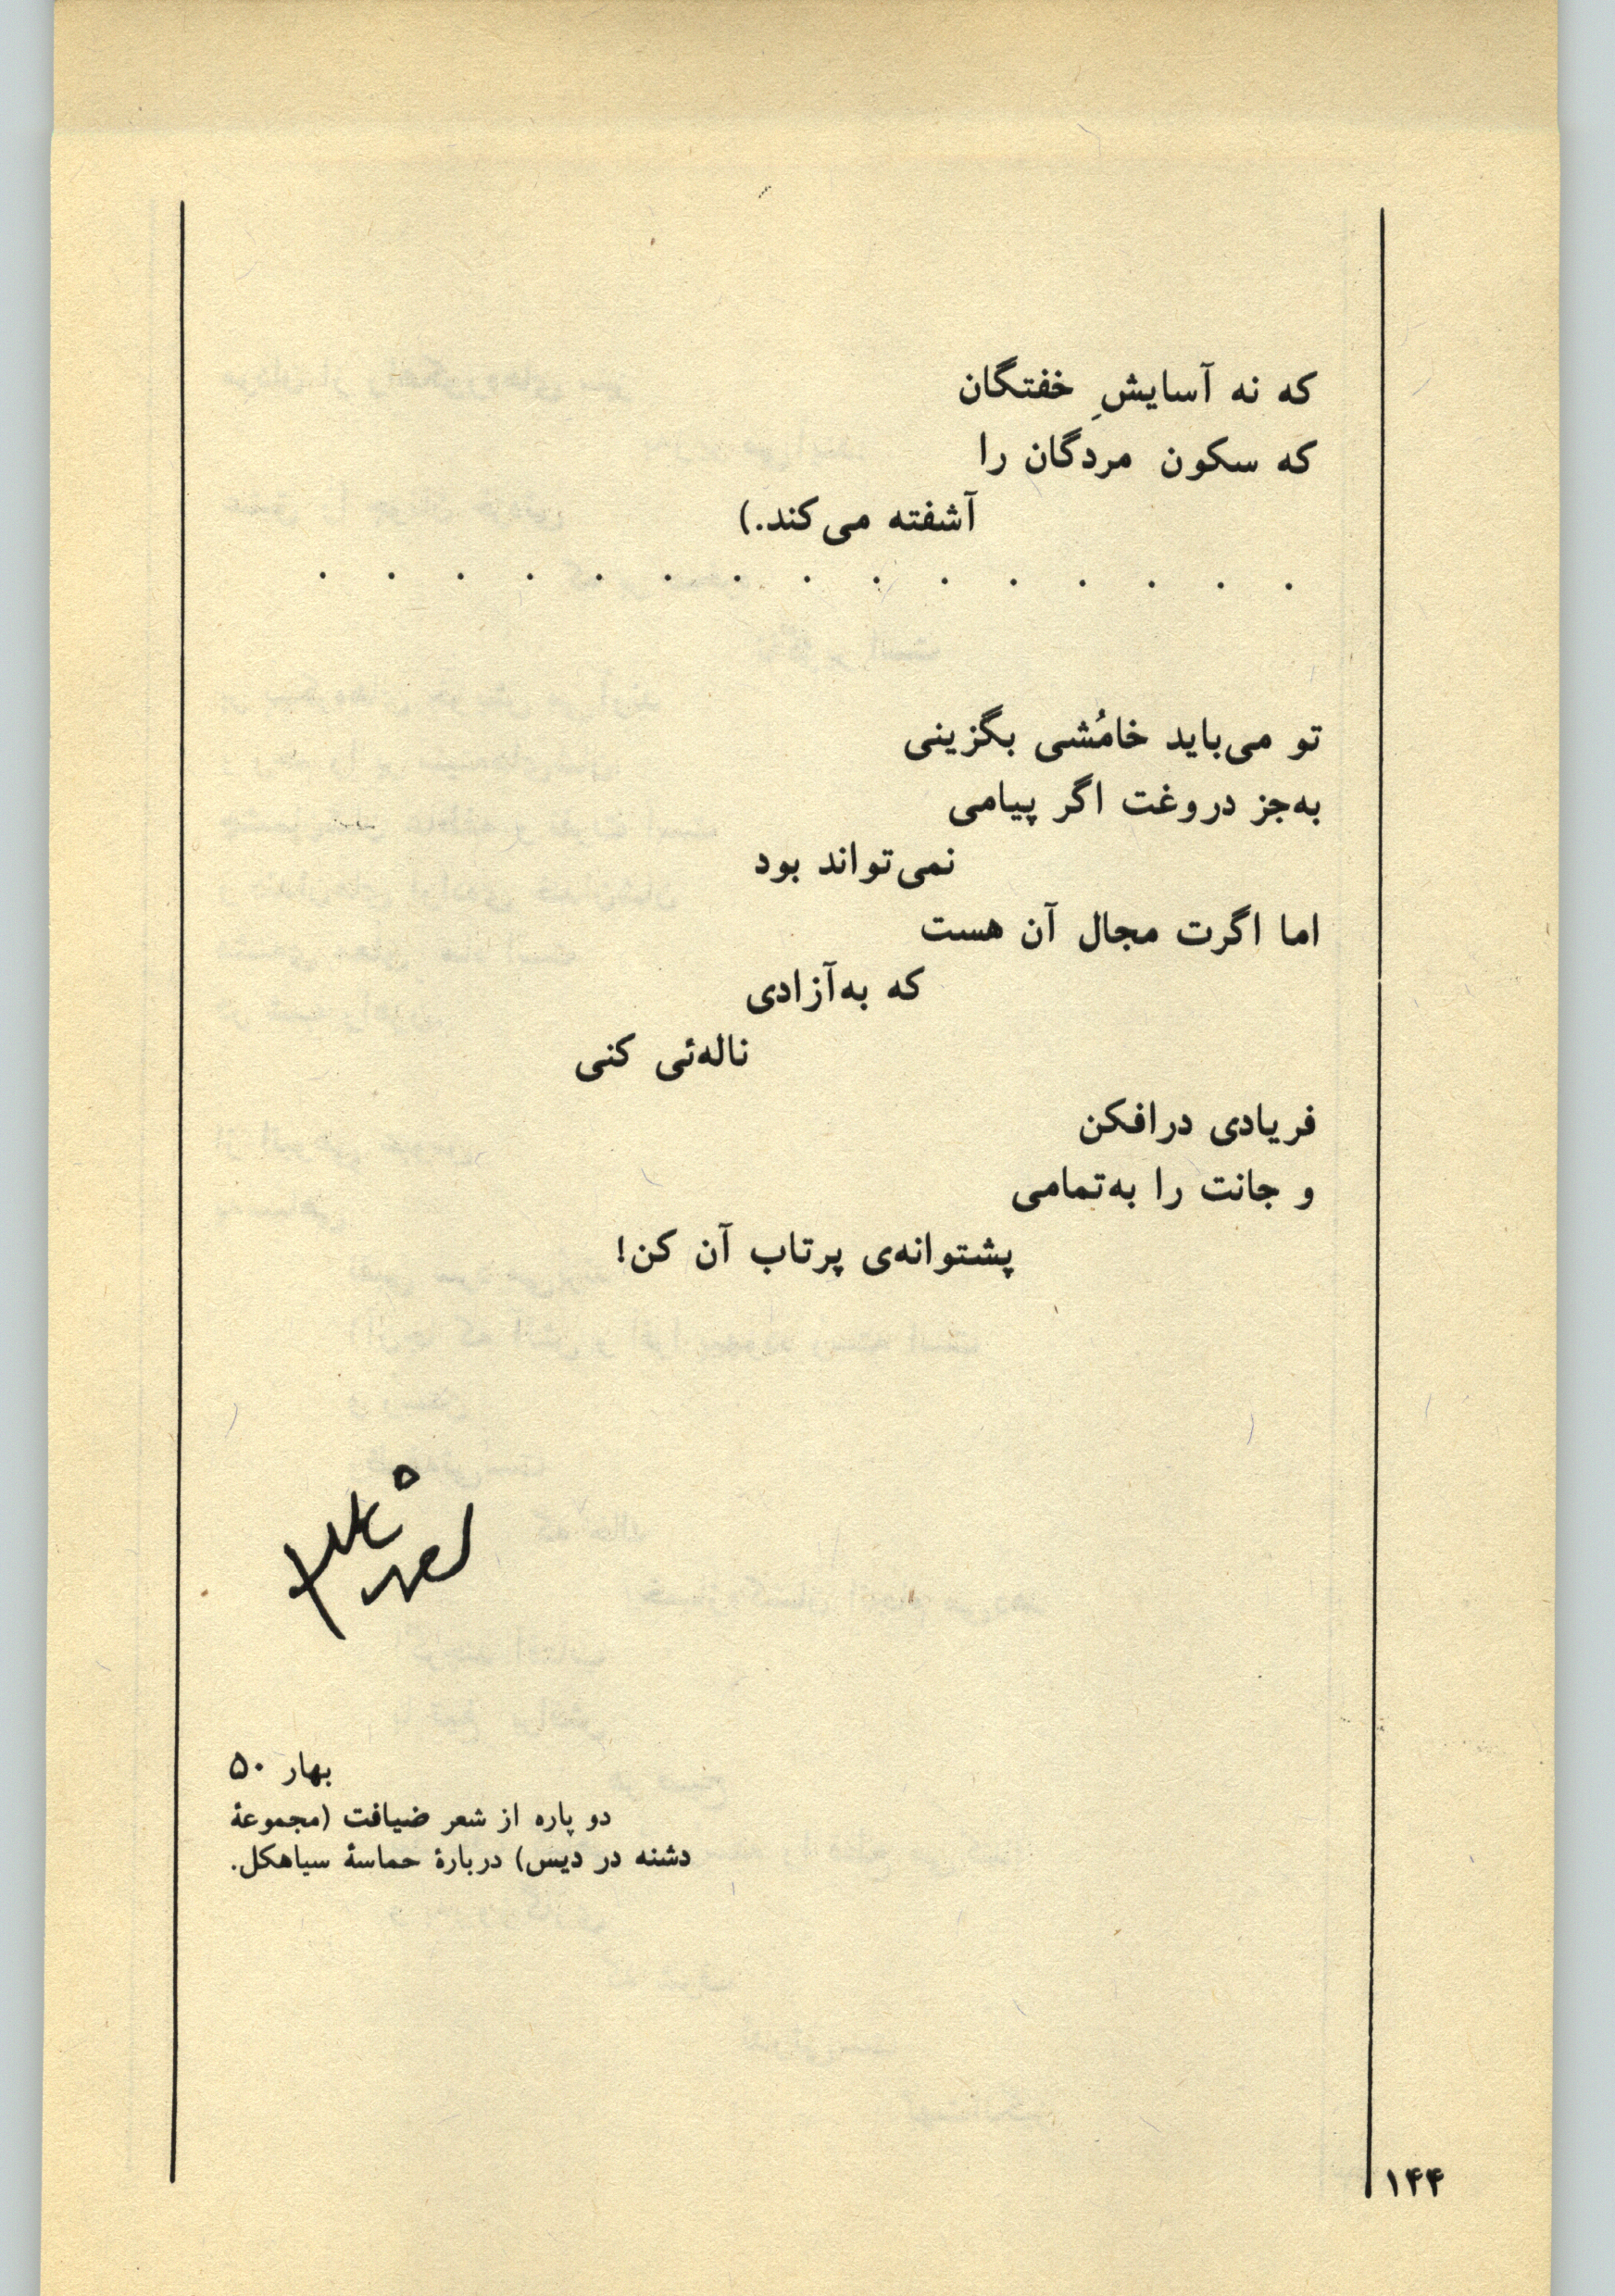 که نه آسایشِ خفتگان
که سکون مردگان را
آشفته می‌کند.)
. . . . . . . . . . . . . . .
تو می‌باید خامُشی بگزینی
به‌جز دروغت اگر پیامی
نمی‌تواند بود
اما اگرت مجال آن هست
که به‌آزادی
ناله‌ئی کنی
فریادی درافکن
و جانت را به‌تمامی
پشتوانه‌ی پرتاب آن کن!
بهار ۵۰
دو پاره از شعر ضیافت (مجموعهٔ
دشنه در دیس) دربارهٔ حماسهٔ سیاهکل.
۱۴۴